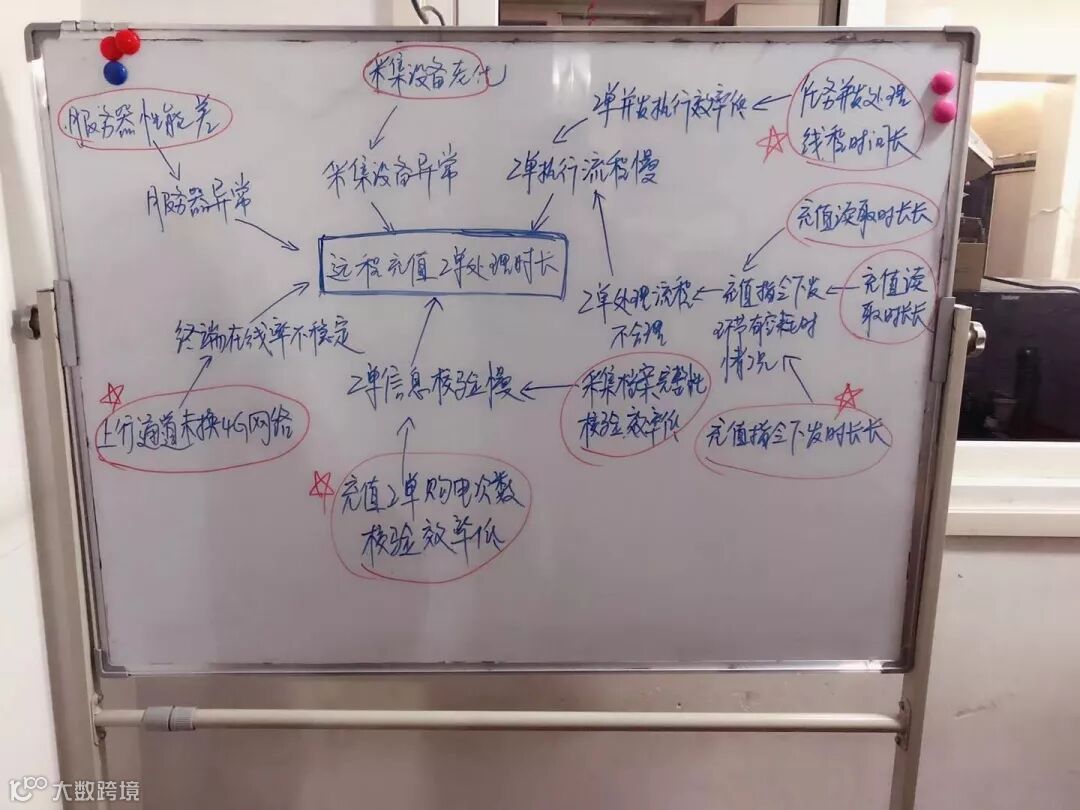 采集设备老化
服务器性能差
工单并发执行效率低
任务并发处理
线程时间长
服务器异常
采集设备异常
工单执行流程慢
充值读取时长长
远程充值工单处理时长
工单处理流程
不合理
充值指令下发
环节有空耗时
情况
充值读
取时长长
终端在线率不稳定
工单信息核验慢
采集档案完整性
核验效率低
上行通道未换4G网络
充值指令下发时长长
充值工单购电次数
核验效率低
大数跨境